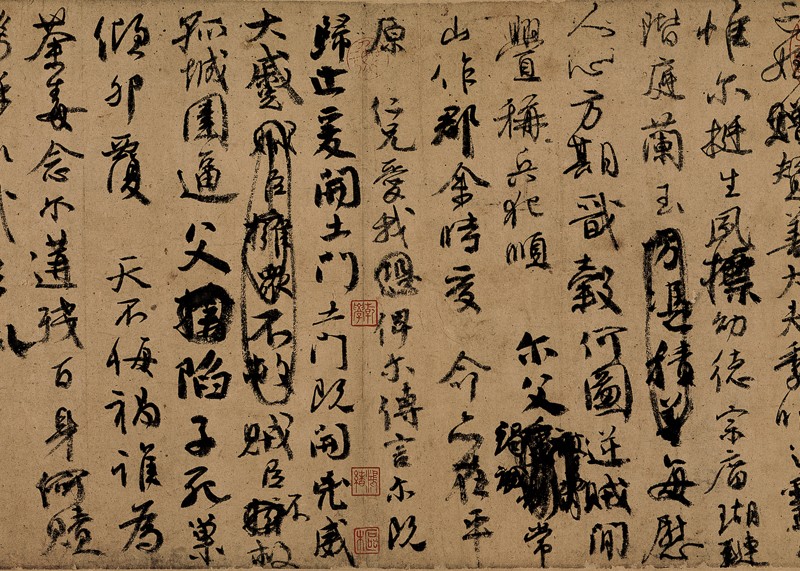 亡姪贈贊善大夫季明之靈
惟尔挺生夙標幼德宗廟瑚璉
階庭蘭玉方憑積善每慰
人心方期戩穀何圖逆賊間
釁稱兵犯順尔父竭誠常
山作郡余時受命亦在平
原仁兄愛我恐俾尔傳言尔既
歸止爰開土門土門既開凶威
大蹙賊臣擁眾不救賊臣不救
孤城圍逼父陷子死巢
傾卵覆天不悔禍誰為
荼毒念尔遘殘百身何贖